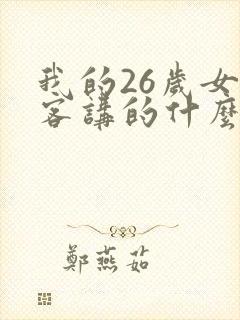 我的26歲女
客講的什麼
鄭燕茹